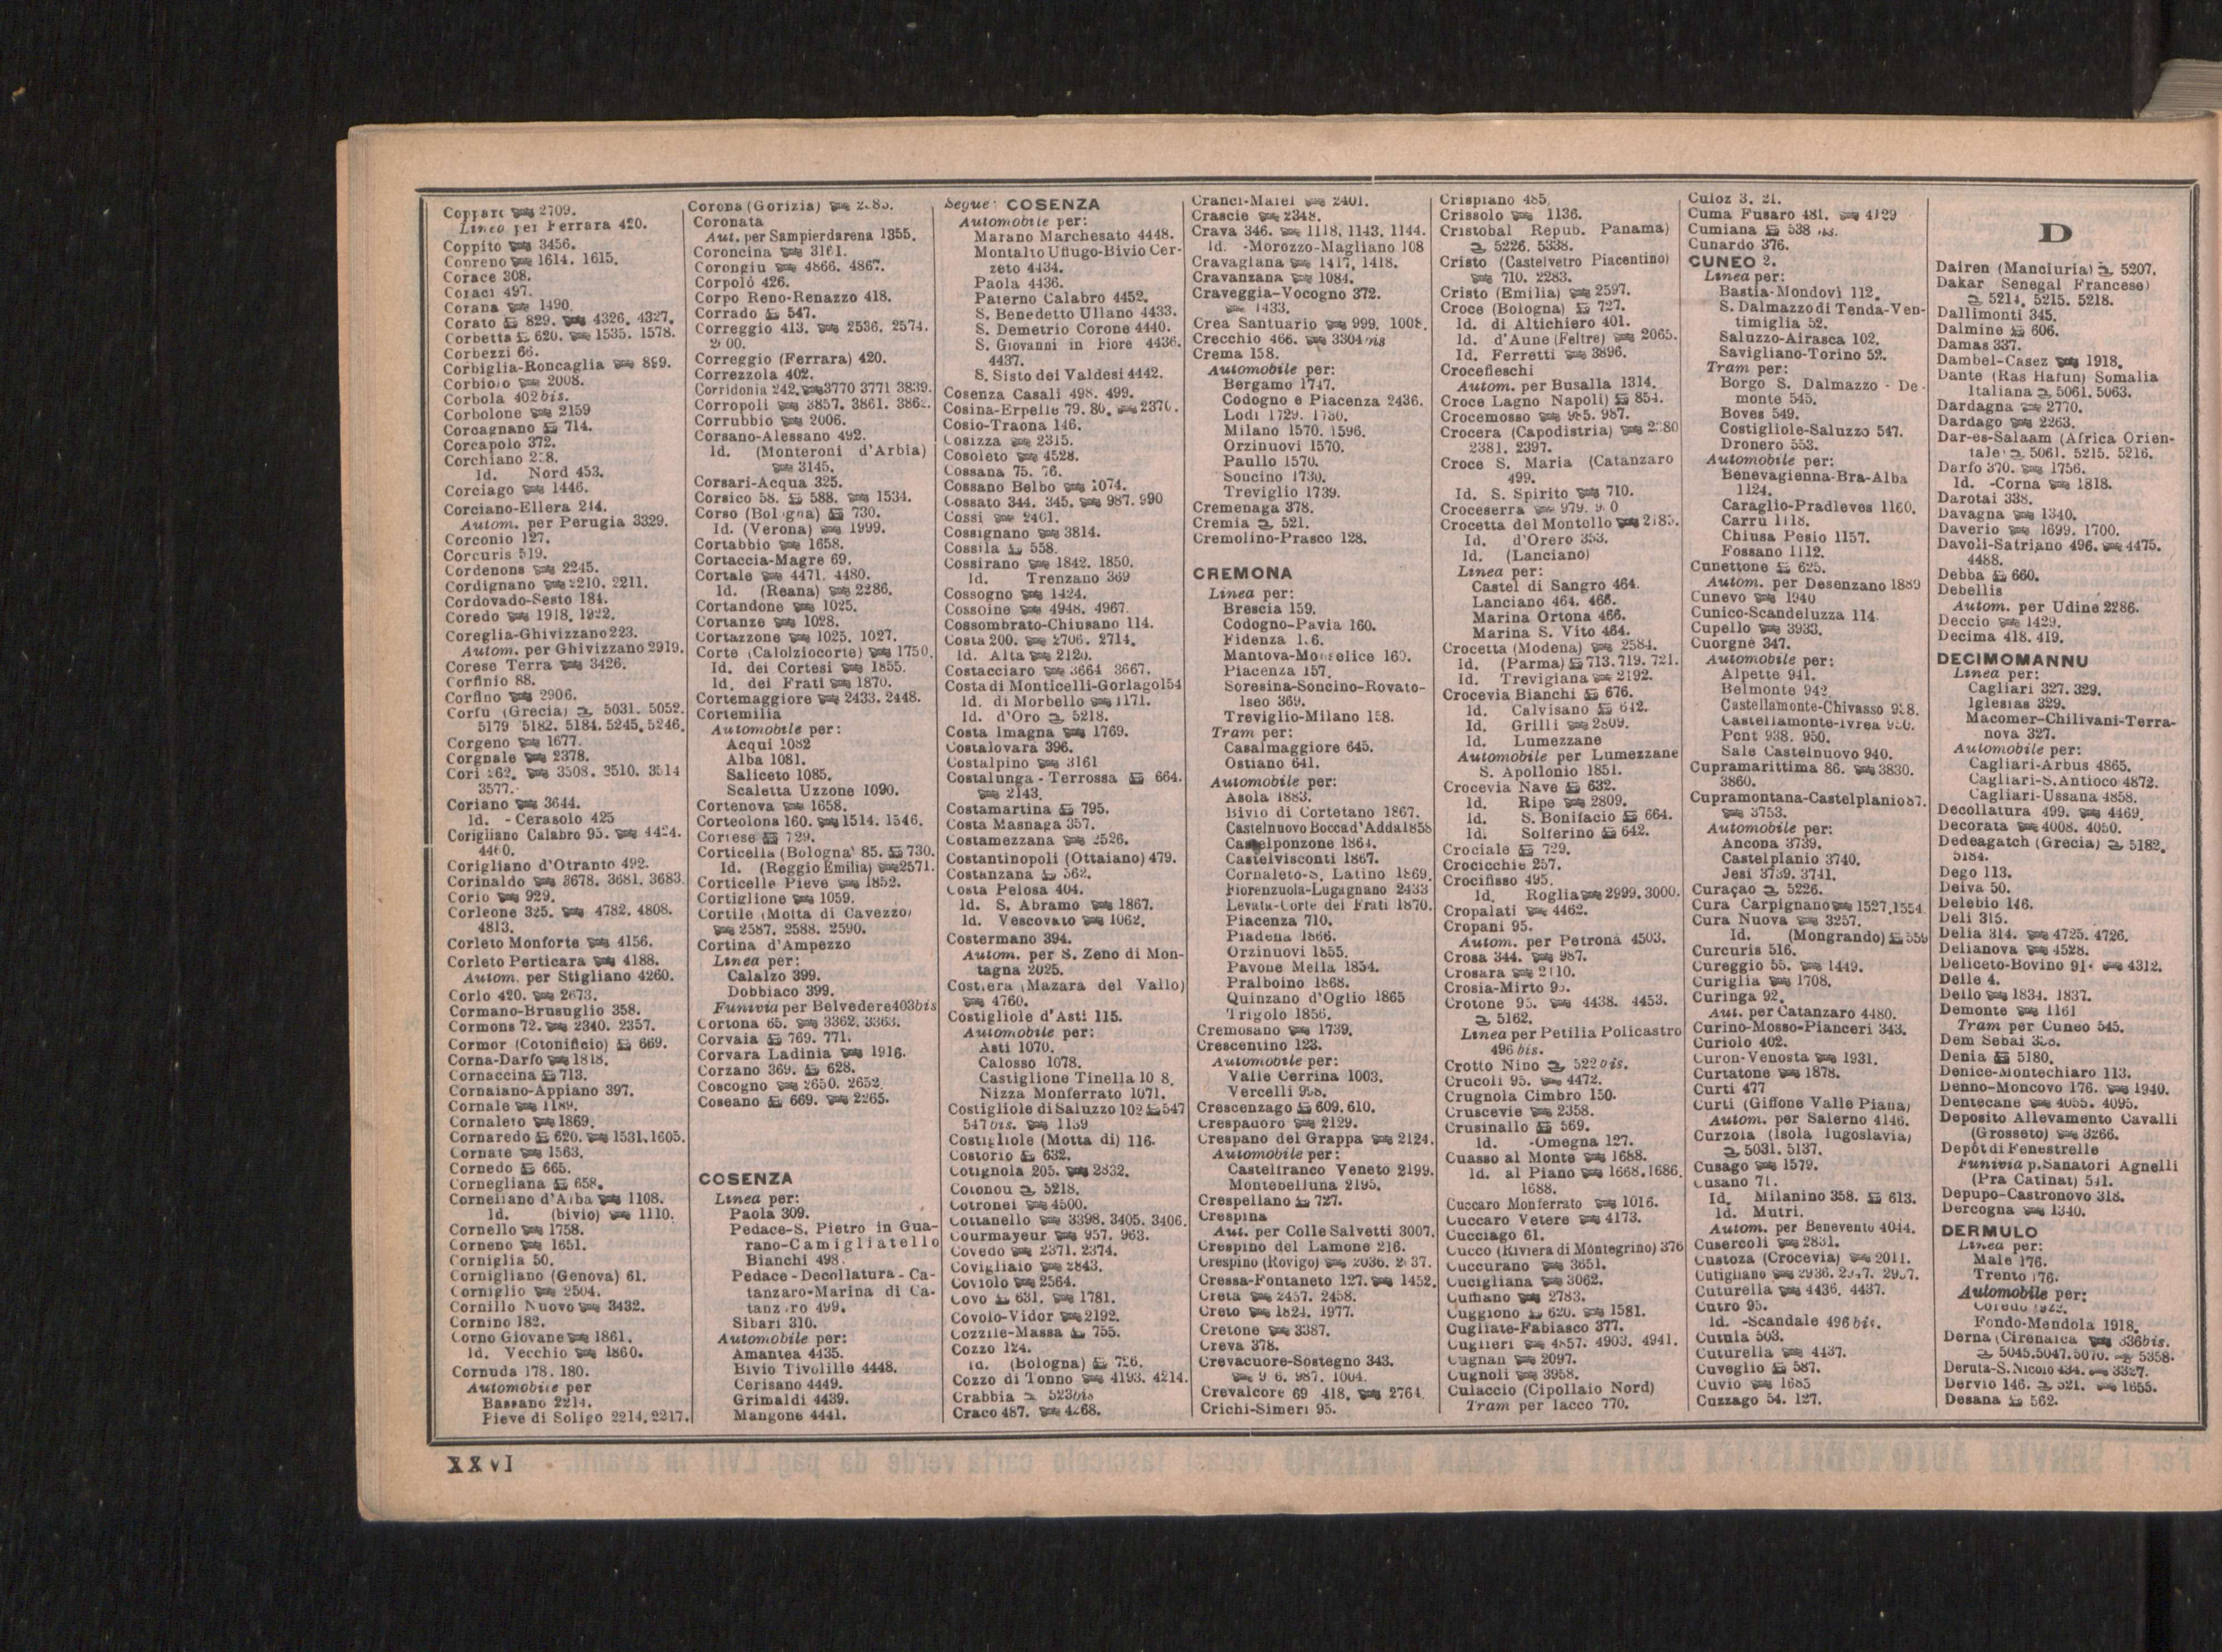 Copparo 2709.
Linea per Ferrara 420.
Coppito 3456.
Copreno 1614. 1615.
Corace 308.
Coraci 497.
Corana 1490.
Corato 829. 4326. 4327.
Corbetta 620. 1535. 1578.
Corbezzi 66.
Corbiglia-Roncaglia 899.
Corbiolo 2008.
Corbola 402 bis.
Corbolone 2159
Corcagnano 714.
Corcapolo 372.
Corchiano
Id. Nord 453.
Corciago 1446.
Corciano-Ellera 244.
Autom. per Perugia 3329.
Corconio 127.
Corcuris 519.
Cordenons 2245.
Cordignano 2210. 2211.
Cordovado-Sesto 184.
Coredo 1918. 1922.
Coreglia-Ghivizzano 223.
Autom. per Ghivizzano 2919.
Corese Terra 3426.
Corfinio 88.
Corfino 2906.
Corfu (Grecia) 5031. 5052.
5179 5182. 5184. 5245. 5246.
Corgeno 1677.
Corgnale 2378.
Cori 3508. 3510. 3514
3577.
Coriano 3644.
Id. - Cerasolo 425
Corigliano Calabro 95. 4424.
4460.
Corigliano d'Otranto 492.
Corinaldo 3678. 3681. 3683.
Corio 929.
Corleone 325. 4782. 4808.
4813.
Corleto Monforte 4156.
Corleto Perticara 4188.
Autom. per Stigliano 4260.
Corlo 420. 2673.
Cormano-Brusuglio 358.
Cormons 72. 2340. 2357.
Cormor (Cotonificio) 669.
Corna-Darfo 1818.
Cornaccina 713.
Cornaiano-Appiano 397.
Cornale 1189.
Cornaleto 1869.
Cornaredo 620. 1531. 1605.
Cornate 1563.
Cornedo 665.
Cornegliana 658.
Corneliano d'Alba 1108.
Id. (bivio) 1110.
Cornello 1758.
Corneno 1651.
Corniglia 50.
Cornigliano (Genova) 61.
Corniglio 2504.
Cornillo Nuovo 3432.
Cornino 182.
Corno Giovane 1861.
Id. Vecchio 1860.
Cornuda 178. 180.
Automobile per
Bassano 2214.
Pieve di Soligo 2214. 2217.
Corona (Gorizia)
Coronata
Aut. per Sampierdarena 1355.
Coroncina 3161.
Corongiu 4866. 4867.
Corpolò 426.
Corpo Reno-Renazzo 418.
Corrado 547.
Correggio 413. 2536. 2574.
Correggio (Ferrara) 420.
Correzzola 402.
Corridonia 242. 3770 3771 3839.
Corropoli 3857. 3861. 3862.
Corrubbio 2006.
Corsano-Alessano 492.
Id. (Monteroni d'Arbia)
3145.
Corsari-Acqua 325.
Corsico 58. 588. 1534.
Corso (Bologna) 730.
Id. (Verona) 1999.
Cortabbio 1658.
Cortaccia-Magre 69.
Cortale 4471. 4480.
Id. (Reana) 2286.
Cortandone 1025.
Cortanze 1028.
Cortazzone 1025. 1027.
Corte (Calolziocorte) 1750.
Id. dei Cortesi 1855.
Id. dei Frati 1870.
Cortemaggiore 2433. 2448.
Cortemilia
Automobile per:
Acqui 1082
Alba 1081.
Saliceto 1085.
Scaletta Uzzone 1090.
Cortenova 1658.
Corteolona 160. 1514. 1546.
Cortese 729.
Corticella (Bologna) 85. 730.
Id. (Reggio Emilia) 2571.
Corticelle Pieve 1852.
Cortiglione 1059.
Cortile (Motta di Cavezzo)
2587. 2588. 2590.
Cortina d'Ampezzo
Linea per:
Calalzo 399.
Dobbiaco 399.
Funivia per Belvedere 403bis
Cortona 65. 3362. 3363.
Corvaia 769. 771.
Corvara Ladinia 1916.
Corzano 369. 628.
Coscogno 2650. 2652
Coseano 669. 2265.
COSENZA
Linea per:
Paola 309.
Pedace-S. Pietro in Gua-
rano-Camigliatello
Bianchi 498.
Pedace - Decollatura - Ca-
tanzaro-Marina di Ca-
tanzaro 499.
Sibari 310.
Automobile per:
Amantea 4435.
Bivio Tivolille 4448.
Cerisano 4449.
Grimaldi 4439.
Mangone 4441.
Segue: COSENZA
Automobile per:
Marano Marchesato 4448.
Montalto Uffugo-Bivio Cer-
zeto 4434.
Paola 4436.
Paterno Calabro 4452.
S. Benedetto Ullano 4433.
S. Demetrio Corone 4440.
S. Giovanni in Fiore 4436.
4437.
S. Sisto dei Valdesi 4442.
Cosenza Casali 498. 499.
Cosina-Erpelle 79. 80. 2370.
Cosio-Traona 146.
Cosizza 2315.
Cosoleto 4528.
Cossana 75. 76.
Cossano Belbo 1074.
Cossato 344. 345. 987. 990
Cossi 2401.
Cossignano 3814.
Cossila 558.
Cossirano 1842. 1850.
Id. Trenzano 369
Cossogno 1424.
Cossoine 4948. 4967.
Cossombrato-Chiusano 114.
Costa 200. 2706. 2714.
Id. Alta 2120.
Costacciaro 3664 3667.
Costa di Monticelli-Gorlago 154
Id. di Morbello 1171.
Id. d'Oro 5218.
Costa Imagna 1769.
Costalovara 396.
Costalpino 3161
Costalunga - Terrossa 664.
2143.
Costamartina 795.
Costa Masnaga 357.
Costamezzana 2526.
Costantinopoli (Ottaiano) 479.
Costanzana 562.
Costa Pelosa 404.
Id. S. Abramo 1867.
Id. Vescovato 1062.
Costermano 394.
Autom. per S. Zeno di Mon-
tagna 2025.
Costiera (Mazara del Vallo)
4760.
Costigliole d'Asti 115.
Automobile per:
Asti 1070.
Calosso 1078.
Castiglione Tinella
Nizza Monferrato 1071.
Costigliole di Saluzzo 102 547
547 bis. 1139
Costigliole (Motta di) 116.
Costorio 632.
Cotignola 205. 2832.
Cotonou 5218.
Cotronei 4500.
Cottanello 3398. 3405. 3406.
Courmayeur 957. 963.
Covedo 2371. 2374.
Covigliaio 2843.
Coviolo 2564.
Covo 631. 1781.
Covolo-Vidor 2192.
Cozzile-Massa 755.
Cozzo 124.
Id. (Bologna) 726.
Cozzo di Tonno 4193. 4214.
Crabbia 523bis
Craco 487. 4268.
Cranci-Matel 2401.
Crascie 2348.
Crava 346. 1118. 1143. 1144.
Id. -Morozzo-Magliano 108
Cravagliana 1417. 1418.
Cravanzana 1084.
Craveggia-Vocogno 372.
1433.
Crea Santuario 999. 1008.
Crecchio 466. 3304bis
Crema 158.
Automobile per:
Bergamo 1747.
Codogno e Piacenza 2436.
Lodi 1729. 1730.
Milano 1570. 1596.
Orzinuovi 1570.
Paullo 1570.
Soncino 1730.
Treviglio 1739.
Cremenaga 378.
Cremia 521.
Cremolino-Prasco 128.
CREMONA
Linea per:
Brescia 159.
Codogno-Pavia 160.
Fidenza
Mantova-Monselice 160.
Piacenza 157.
Soresina-Soncino-Rovato-
Iseo 369.
Treviglio-Milano 158.
Tram per:
Casalmaggiore 645.
Ostiano 641.
Automobile per:
Asola 1883.
Bivio di Cortetano 1867.
Castelnuovo Bocca d'Adda 1858
Castelponzone 1864.
Castelvisconti 1867.
Cornaleto-S. Latino 1869.
Fiorenzuola-Lugagnano 2433
Levata-Corte dei Frati 1870.
Piacenza 710.
Piadena 1866.
Orzinuovi 1855.
Pavone Mella 1854.
Pralboino 1868.
Quinzano d'Oglio 1865
Trigolo 1856.
Cremosano 1739.
Crescentino 123.
Automobile per:
Valle Cerrina 1003.
Vercelli 998.
Crescenzago 609. 610.
Crespadoro 2129.
Crespano del Grappa 2124.
Automobile per:
Castelfranco Veneto 2199.
Montebelluna 2195.
Crespellano 727.
Crespina
Aut. per Colle Salvetti 3007.
Crespino del Lamone 216.
Crespino (Rovigo) 2036.
Cressa-Fontaneto 127. 1452.
Creta 2457. 2458.
Creto 1824. 1977.
Cretone 3387.
Creva 378.
Crevacuore-Sostegno 343.
987. 1004.
Crevalcore 69 418. 2764.
Crichi-Simeri 95.
Crispiano 485.
Crissolo 1136.
Cristobal Repub. Panama)
5226. 5338.
Cristo (Castelvetro Piacentino)
710. 2283.
Cristo (Emilia) 2597.
Croce (Bologna) 727.
Id. di Altichiero 401.
Id. d'Aune (Feltre) 2065.
Id. Ferretti 3896.
Crocefieschi
Autom. per Busalla 1314.
Croce Lagno Napoli) 854.
Crocemosso 985. 987.
Crocera (Capodistria)
2381. 2397.
Croce S. Maria (Catanzaro
499.
Id. S. Spirito 710.
Croceserra 979.
Crocetta del Montello 2185.
Id. d'Orero 353.
Id. (Lanciano)
Linea per:
Castel di Sangro 464.
Lanciano 464. 466.
Marina Ortona 466.
Marina S. Vito 464.
Crocetta (Modena) 2584.
Id. (Parma) 713. 719. 721.
Id. Trevigiana 2192.
Crocevia Bianchi 676.
Id. Calvisano 642.
Id. Grilli 2809.
Id. Lumezzane
Automobile per Lumezzane
S. Apollonio 1851.
Crocevia Nave 632.
Id. Ripe 2809.
Id. S. Bonifacio 664.
Id. Solferino 642.
Crociale 729.
Crocicchie 257.
Crocifisso 495.
Id. Roglia 2999. 3000.
Cropalati 4462.
Cropani 95.
Autom. per Petronà 4503.
Crosa 344. 987.
Crosara 2110.
Crosia-Mirto 95.
Crotone 95. 4438. 4453.
5162.
Linea per Petilia Policastro
496 bis.
Crotto Nino 522 bis.
Crucoli 95. 4472.
Crugnola Cimbro 150.
Cruscevie 2358.
Crusinallo 569.
Id. -Omegna 127.
Cuasso al Monte 1688.
Id. al Piano 1668. 1686.
1688.
Cuccaro Monferrato 1016.
Cuccaro Vetere 4173.
Cucciago 61.
Cucco (Riviera di Montegrino) 376
Cuccurano 3651.
Cucigliana 3062.
Cuffiano 2783.
Cuggiono 620. 1581.
Cugliate-Fabiasco 377.
Cuglieri 4857. 4903. 4941.
Cugnan 2097.
Cugnoli 3958.
Culaccio (Cipollaio Nord)
Tram per Iacco 770.
Culoz 3. 21.
Cuma Fusaro 481. 4129
Cumiana 538 bis.
Cunardo 376.
CUNEO 2.
Linea per:
Bastia-Mondovì 112.
S. Dalmazzo di Tenda-Ven-
timiglia 52.
Saluzzo-Airasca 102.
Savigliano-Torino 52.
Tram per:
Borgo S. Dalmazzo - De-
monte 545.
Boves 549.
Costigliole-Saluzzo 547.
Dronero 553.
Automobile per:
Benevagienna-Bra-Alba
1124.
Caraglio-Pradleves 1160.
Carrù 1118.
Chiusa Pesio 1157.
Fossano 1112.
Cunettone 625.
Autom. per Desenzano 1889
Cunevo 1940
Cunico-Scandeluzza 114.
Cupello 3933.
Cuorgnè 347.
Automobile per:
Alpette 941.
Belmonte 942
Castellamonte-Chivasso 938.
Castellamonte-Ivrea 950.
Pont 938. 950.
Sale Castelnuovo 940.
Cupramarittima 86. 3830.
3860.
Cupramontana-Castelplanio 87.
3753.
Automobile per:
Ancona 3739.
Castelplanio 3740.
Jesi 3739. 3741.
Curaçao 5226.
Cura Carpignano 1527. 1554
Cura Nuova 3257.
Id. (Mongrando) 559
Curcuris 516.
Cureggio 55. 1449.
Curiglia 1708.
Curinga 92.
Aut. per Catanzaro 4480.
Curino-Mosso-Pianceri 343.
Curiolo 402.
Curon-Venosta 1931.
Curtatone 1878.
Curti 477
Curti (Giffone Valle Piana)
Autom. per Salerno 4146.
Curzola (Isola Iugoslavia)
5031. 5137.
Cusago 1579.
Cusano 71.
Id. Milanino 358. 613.
Id. Mutri.
Autom. per Benevento 4044.
Cusercoli 2831.
Custoza (Crocevia) 2011.
Cutigliano 2936. 2947. 2957.
Cuturella 4436. 4437.
Cutro 95.
Id. -Scandale 496 bis.
Cutula 503.
Cuturella 4437.
Cuveglio 587.
Cuvio 1685
Cuzzago 54. 127.
D
Dairen (Manciuria) 5207.
Dakar Senegal Francese)
5214. 5215. 5218.
Dallimonti 345.
Dalmine 606.
Damas 337.
Dambel-Casez 1918.
Dante (Ras Hafun) Somalia
Italiana 5061. 5063.
Dardagna 2770.
Dardago 2263.
Dar-es-Salaam (Africa Orien-
tale) 5061. 5215. 5216.
Darfo 370. 1756.
Id. -Corna 1818.
Darotai 338.
Davagna 1340.
Daverio 1699. 1700.
Davoli-Satriano 496. 4475.
4488.
Debba 660.
Debellis
Autom. per Udine 2286.
Deccio 1429.
Decima 418. 419.
DECIMOMANNU
Linea per:
Cagliari 327. 329.
Iglesias 329.
Macomer-Chilivani-Terra-
nova 327.
Automobile per:
Cagliari-Arbus 4865.
Cagliari-S. Antioco 4872.
Cagliari-Ussana 4858.
Decollatura 499. 4469.
Decorata 4008. 4050.
Dedeagatch (Grecia) 5182.
5184.
Dego 113.
Deiva 50.
Delebio 146.
Deli 315.
Delia 314. 4725. 4726.
Delianova 4528.
Deliceto-Bovino 91. 4312.
Delle 4.
Dello 1834. 1837.
Demonte 1161
Tram per Cuneo 545.
Dem Sebai
Denia 5180.
Denice-Montechiaro 113.
Denno-Moncovo 176. 1940.
Dentecane 4055. 4095.
Deposito Allevamento Cavalli
(Grosseto) 3266.
Depôt di Fenestrelle
Funivia p. Sanatori Agnelli
(Pra Catinat) 541.
Depupo-Castronovo 318.
Dercogna 1340.
DERMULO
Linea per:
Male 176.
Trento 176.
Automobile per:
Coredo 1922.
Fondo-Mendola 1918.
Derna (Cirenaica 336bis.
5045. 5047. 5070. 5358.
Deruta-S. Nicolò 434. 3327.
Dervio 146. 521. 1655.
Desana 562.
XXVI